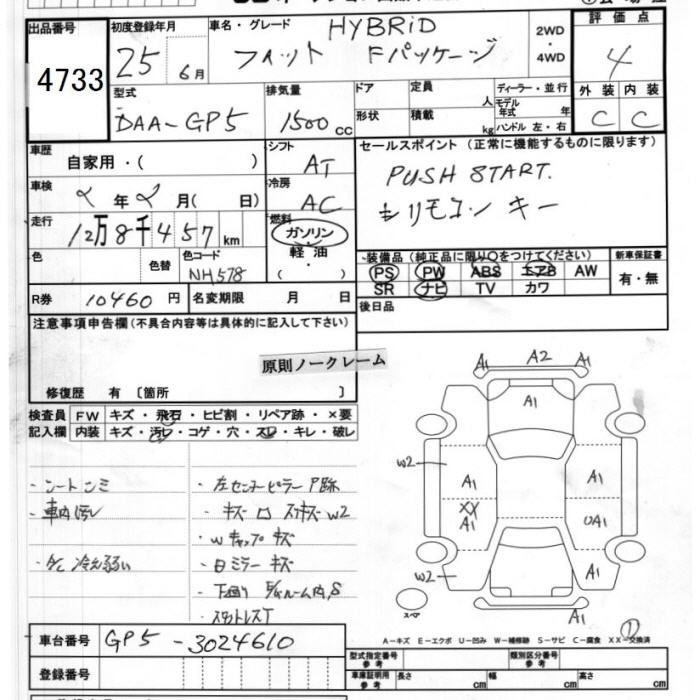 出品番号 初度登録年月 車名・グレード HYBRiD 2WD・4WD 評価点
4733 25 6月 フィット Fパッケージ 4
型式 DAA-GP5 排気量 1500cc ドア 定員 人 ディーラー・並行 外装 内装
形状 積載 kg モデル年式 年 ハンドル 左・右 C C
車歴 自家用・( ) シフト AT セールスポイント (正常に機能するものに限ります)
車検 2年2月( 日) 冷房 AC PUSH START.
走行 12万8千457km 燃料 ガソリン・軽油・ モリモコン キー
色 色替 色コード NH578 装備品(純正品に限り○をつけてください) 新車保証書
PS PW ABS エアB AW 有・無
SR ナビ TV カワ
R券 10460円 名変期限 月 日 後日品
注意事項申告欄(不具合内容等は具体的に記入して下さい)
原則ノークレーム
修復歴 有〔箇所 〕
検査員 FW キズ・飛石・ヒビ割・リペア跡・×要
記入欄 内装 キズ・汚レ・コゲ・穴・スレ・キレ・破レ
A1 A2 A1
A1
W2
・シートシミ ・左センターピラー P跡
A1 A1
・車内汚レ ・キズ ロ スキズ W2
XX A1 UA1
・Wキャップ キズ
・A/C 冷え弱い ・日ミラー キズ
W2 A1
・下回り E/Gルーム内 S
・スタットレスT
スペア A1
A-キズ E-エクボ U-凹み W-補修跡 S-サビ C-腐食 XX-交換済
車台番号 GP5-3024610
型式指定番号 参考 類別区分番号 参考
登録番号 車庫証明用 参考 長さ cm 幅 cm 高さ cm